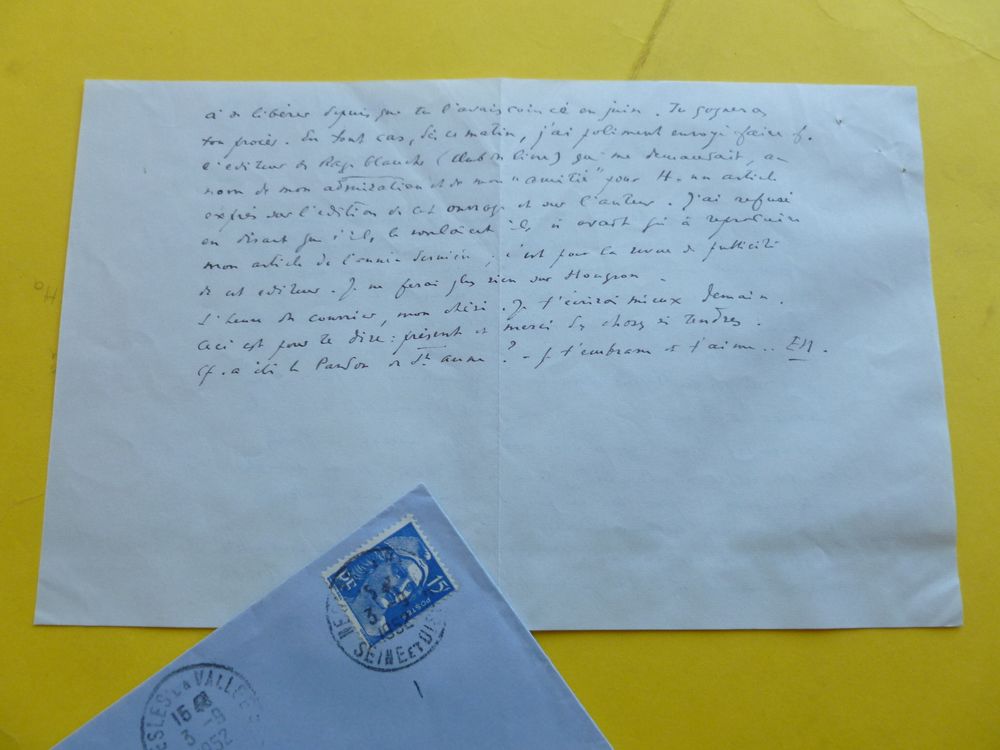 à se libérer depuis que tu l'avais coincé en juin. Tu gagneras
ton procès. En tout cas, ce matin, j'ai poliment envoyé faire f.
l'éditeur de Rage blanche (Club du livre) qui me demandait, au
nom de mon admiration et de mon "amitié" pour H. un article
exprès sur l'édition de cet ouvrage et sur l'auteur. J'ai refusé
en disant que s'ils le voulaient ils avait qu'à reproduire
mon article de l'année dernière, c'est pour la revue de publicité
de cet éditeur. Je ne ferai plus rien sur Hougron.
L'heure du courrier, mon chéri. Je t'écrirai mieux demain.
Ceci est pour te dire: présent et merci des choses si tendres.
Ç'a été le Pardon de Ste anne? - Je t'embrasse et t'aime.. EH.
15F
POSTES
3
1952
SEINE ET OISE
NESLES LA VALLEE
15
3 -9
1952